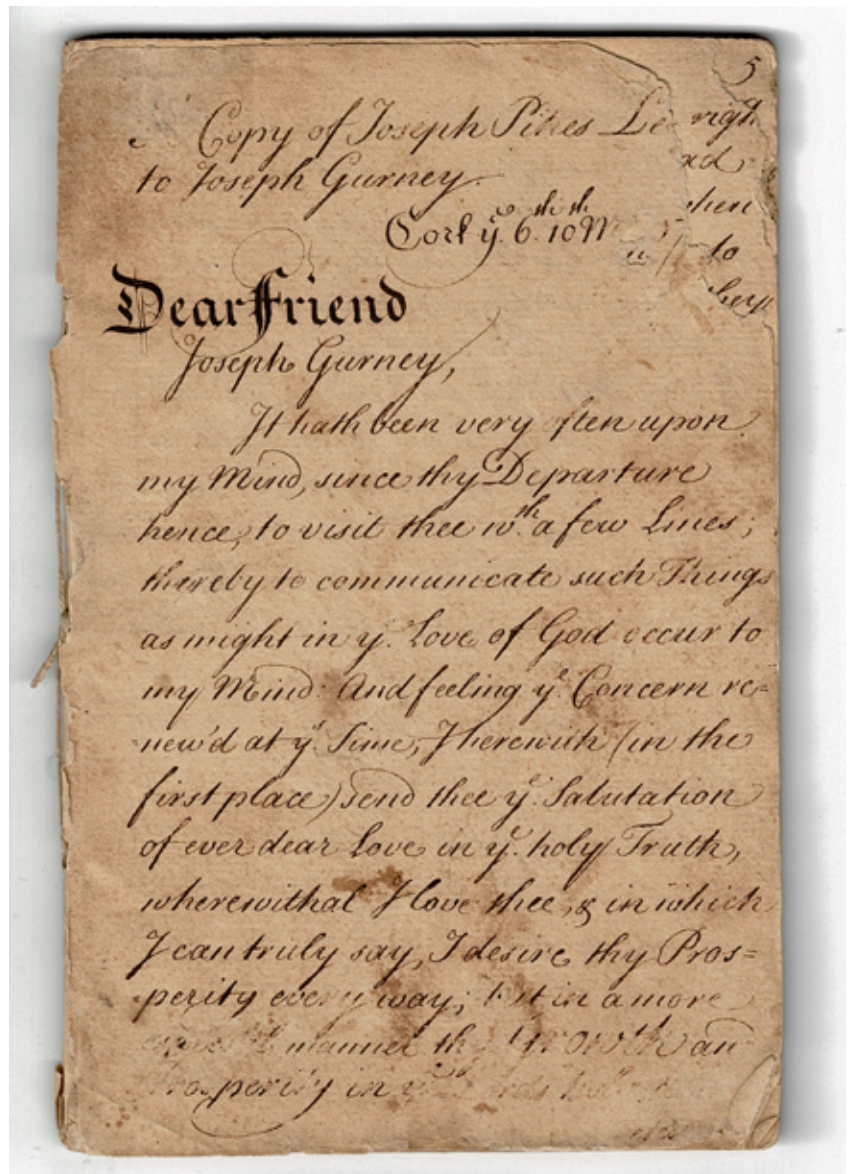 5
Copy of Joseph Pikes Le
to Joseph Gurney.
Cork yᵉ. 6ᵗʰ. 10ᵗʰ
Dear Friend
Joseph Gurney,
It hath been very often upon
my Mind, since thy Departure
hence, to visit thee wᵗʰ. a few Lines;
thereby to communicate such Things
as might in yᵉ. Love of God occur to
my Mind: And feeling yᵉ. Concern re=
new'd at yˢ. Time, I herewith (in the
first place) send thee yᵉ. Salutation
of ever dear Love in yᵉ. holy Truth,
wherewithal I love thee, & in which
I can truly say, I desire thy Pros=
perity every way; but in a more
manner thy Growth an
Prosperity in yᵉ
righ
to